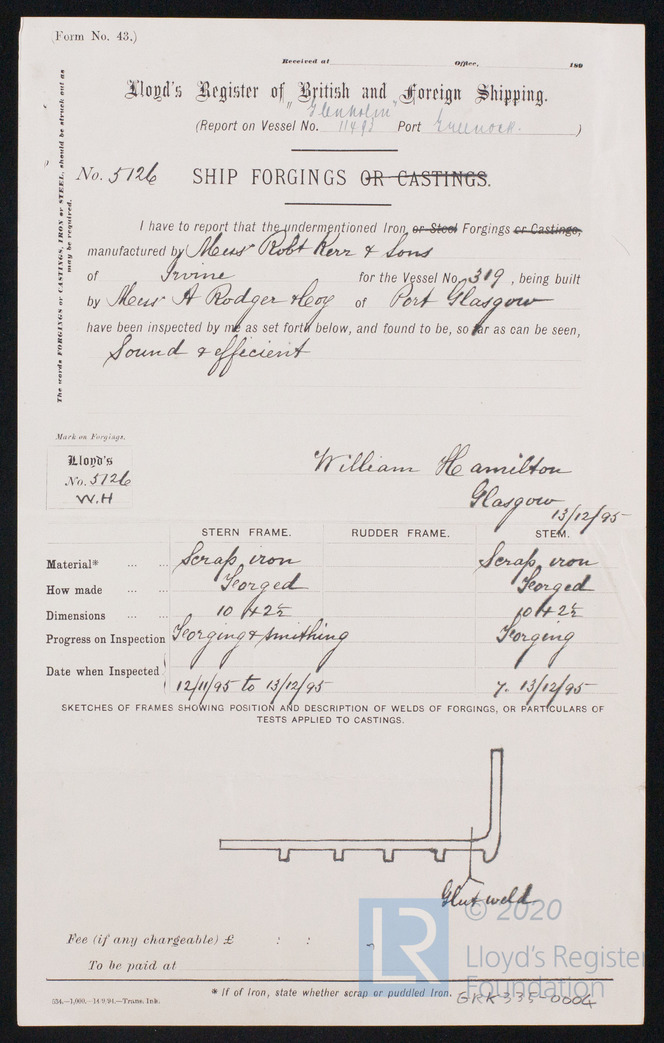 (Form No. 43.)
Received at Office, 189
Lloyd's Register of British and Foreign Shipping.
"Glenholm"
(Report on Vessel No. 11493 Port Greenock. )
The words FORGINGS or CASTINGS, IRON or STEEL, should be struck out as
may be required.
No. 5126 SHIP FORGINGS OR CASTINGS.
I have to report that the undermentioned Iron or Steel Forgings or Castings,
manufactured by Mess Robt Kerr & Sons
of Irvine for the Vessel No. 319, being built
by Mess A Rodger & Coy of Port Glasgow
have been inspected by me as set forth below, and found to be, so far as can be seen,
Sound & efficient
Mark on Forgings.
Lloyd's
No. 5126
W.H
William Hamilton
Glasgow
13/12/95
STERN FRAME. RUDDER FRAME. STEM.
Material* ... ... Scrap iron Scrap iron
How made ... ... Forged Forged
Dimensions ... ... 10 × 2½ 10 × 2½
Progress on Inspection Forging & smithing Forging
Date when Inspected 12/11/95 to 13/12/95 7. 13/12/95
SKETCHES OF FRAMES SHOWING POSITION AND DESCRIPTION OF WELDS OF FORGINGS, OR PARTICULARS OF
TESTS APPLIED TO CASTINGS.
Glut weld
Fee (if any chargeable) £ : :
To be paid at
* If of Iron, state whether scrap or puddled Iron.
554.—1,000.—14/9/94.—Trans. Ink.
GRK335-0004
LR
© 2020
Lloyd's Register
Foundation